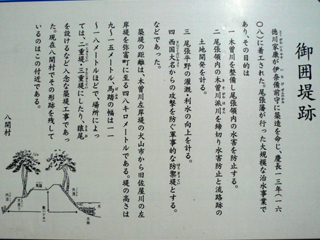 御囲堤跡
徳川家康が伊奈備前守に築造を命じ、慶長一三年(一六
〇八)に着工された尾張藩が行った大規模な治水事業で
あり、その目的は
一 木曽川を整備し尾張領内の水害を防止する。
二 尾張領内の木曽川派川を締切り水害防止と流路跡の
土地開発を計る。
三 尾張平野の灌漑・利水の向上を計る。
四 西国大名からの攻撃を防ぐ軍事的な防禦堤とする。
などであった。
築堤の距離は、木曽川左岸堤の犬山市から旧佐屋川の左
岸堤を弥富町に至る四八キロメートルである。堤の高さは
九〜一五メートル、馬踏の幅は一一
〜一八メートルほどで、場所によっ
ては、二重堤・三重堤にしたり、猿尾
を設けるなど入念な築堤工事であっ
た。現在八開村でその形跡を残して
いるのはこの付近である。
八開村